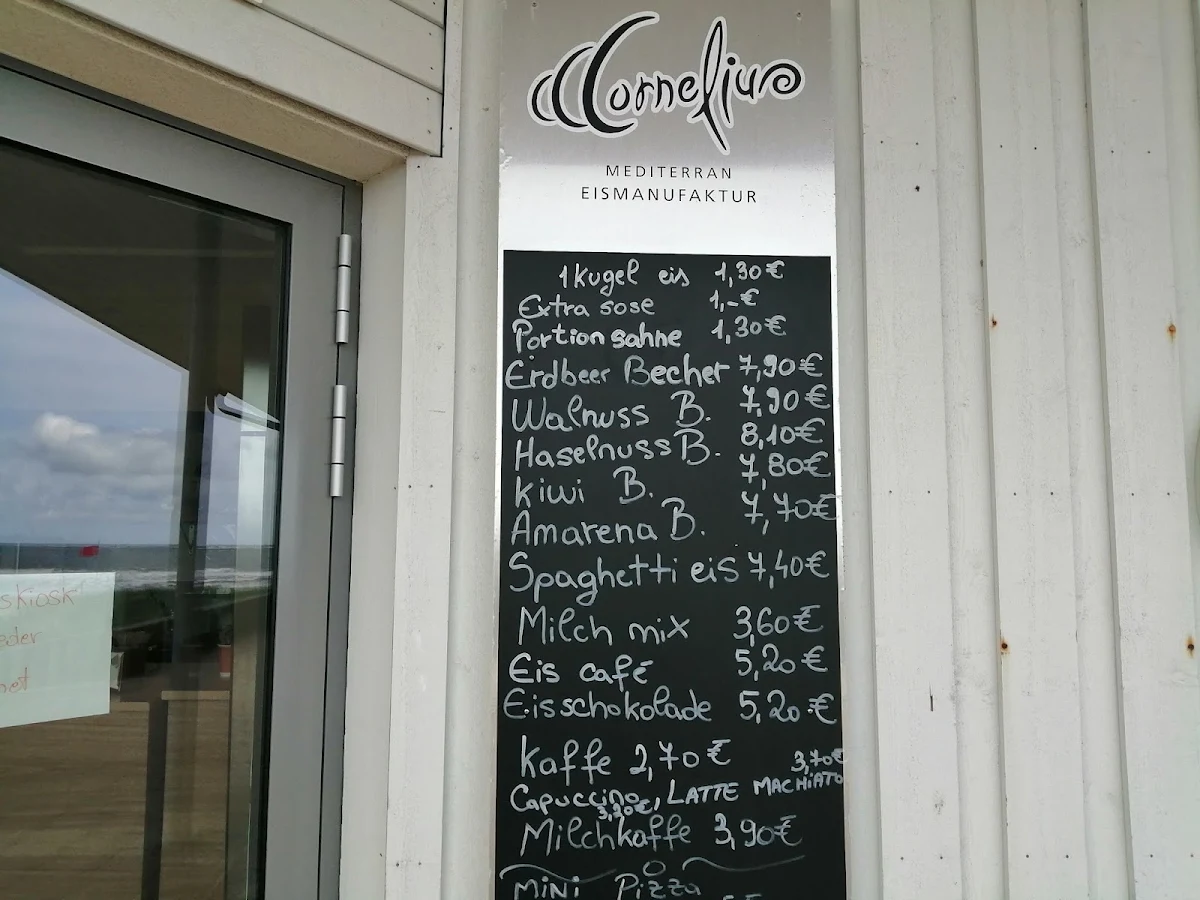 Cornelius
MEDITERRAN
EISMANUFAKTUR
1 Kugel eis 1,30€
Extra sose 1,-€
Portion sahne 1,30€
Erdbeer Becher 7,90€
Walnuss B. 7,90€
Haselnuss B. 8,10€
Kiwi B. 7,80€
Amarena B. 7,70€
Spaghetti eis 7,40€
Milch mix 3,60€
Eis café 5,20€
Eisschokolade 5,20€
Kaffe 2,70€
3,70€
Capuccino, LATTE MACHIATO
Milchkaffe 3,90€
MINI Pizza
skiosk